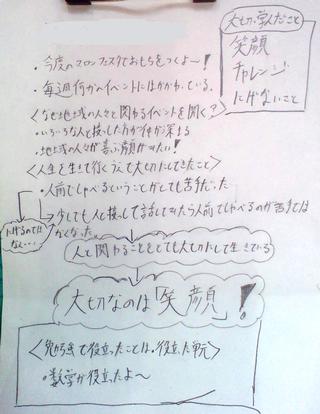 大切、学んだこと
笑顔
チャレンジ
にげないこと
・今度のマロンフェスタでおもちをつくよ〜！
・毎週何かイベントにはかかわっている。
〈なぜ地域の人々と関わるイベントを開く？〉
・いろいろな人と接した方が仲が深まる
・地域の人々が喜ぶ顔がみたい！
〈人生を生きて行くうえで大切にしてきたこと〉
・人前でしゃべるということがとても苦手だった
→少しでも人と接して話してみたら人前でしゃべるのが苦手では
なくなった
にげるのでは
なく・・・
人と関わることをとても大切にして生きている
大切なのは「笑顔」！
〈勉強で役立ったことは。役立った単元〉
・数学が役立ったよ〜